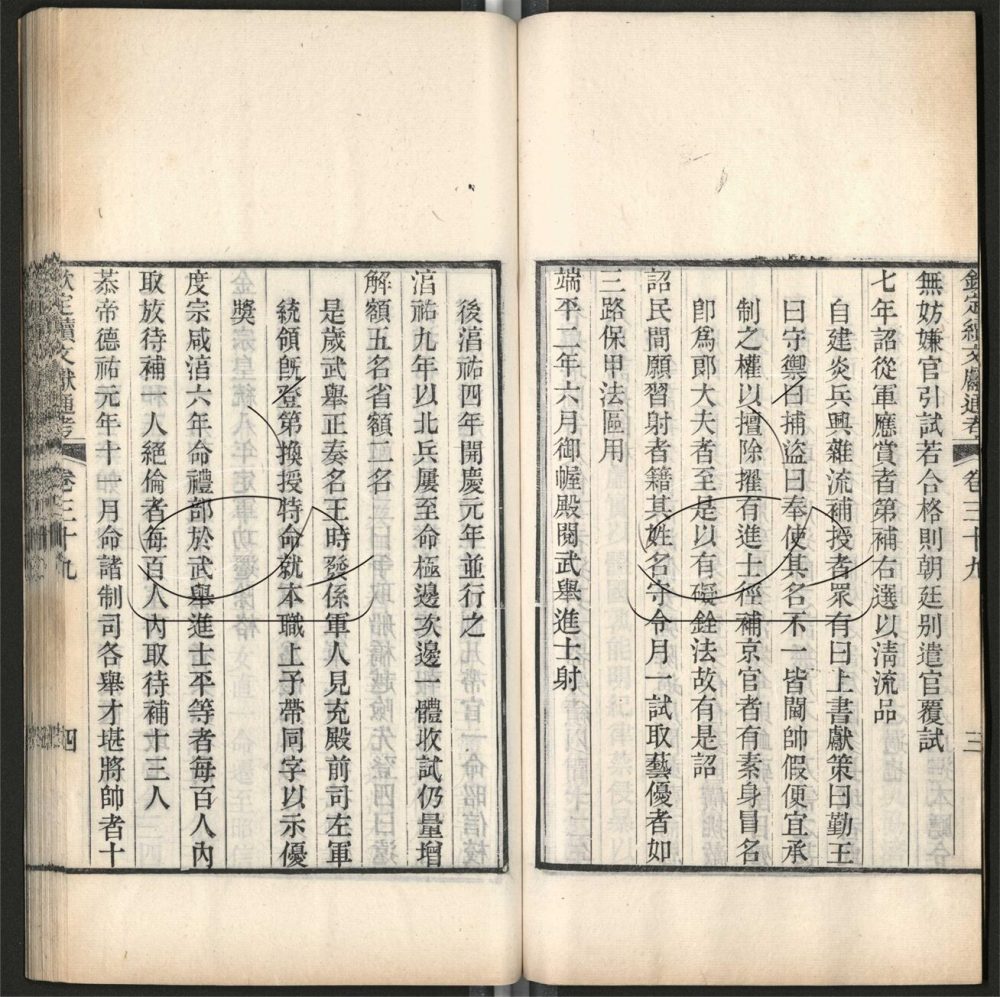 欽定續文獻通考 卷三十九 三
無妨嫌官引試若合格則朝廷别遣官覆試
七年詔從軍應賞者第補右選以清流品
自建炎兵興雜流補授者眾有曰上書獻策曰勤王
曰守禦曰捕盜曰奉使其名不一皆閫帥假便宜承
制之權以擅除擢有進士徑補京官者有素身冒名
卽為郞大夫者至是以有礙銓法故有是詔
詔民間願習射者籍其姓名守令月一試取藝優者如
三路保甲法區用
端平二年六月御幄殿閱武舉進士射
後淯祐四年開慶元年並行之
淯祐九年以北兵屢至命極邊次邊一體收試仍量增
解額五名省額五名
是歲武舉正奏名王時發係軍人見充殿前司左軍
統領旣登第換授特命就本職上予帶同字以示優
獎
度宗咸淯六年命禮部於武舉進士平等者每百人內
取放待補 人絕倫者每百人內取待補十三人
恭帝德祐元年十一月命諸制司各舉才堪將帥者十
欽定續文獻通考 卷三十九 四